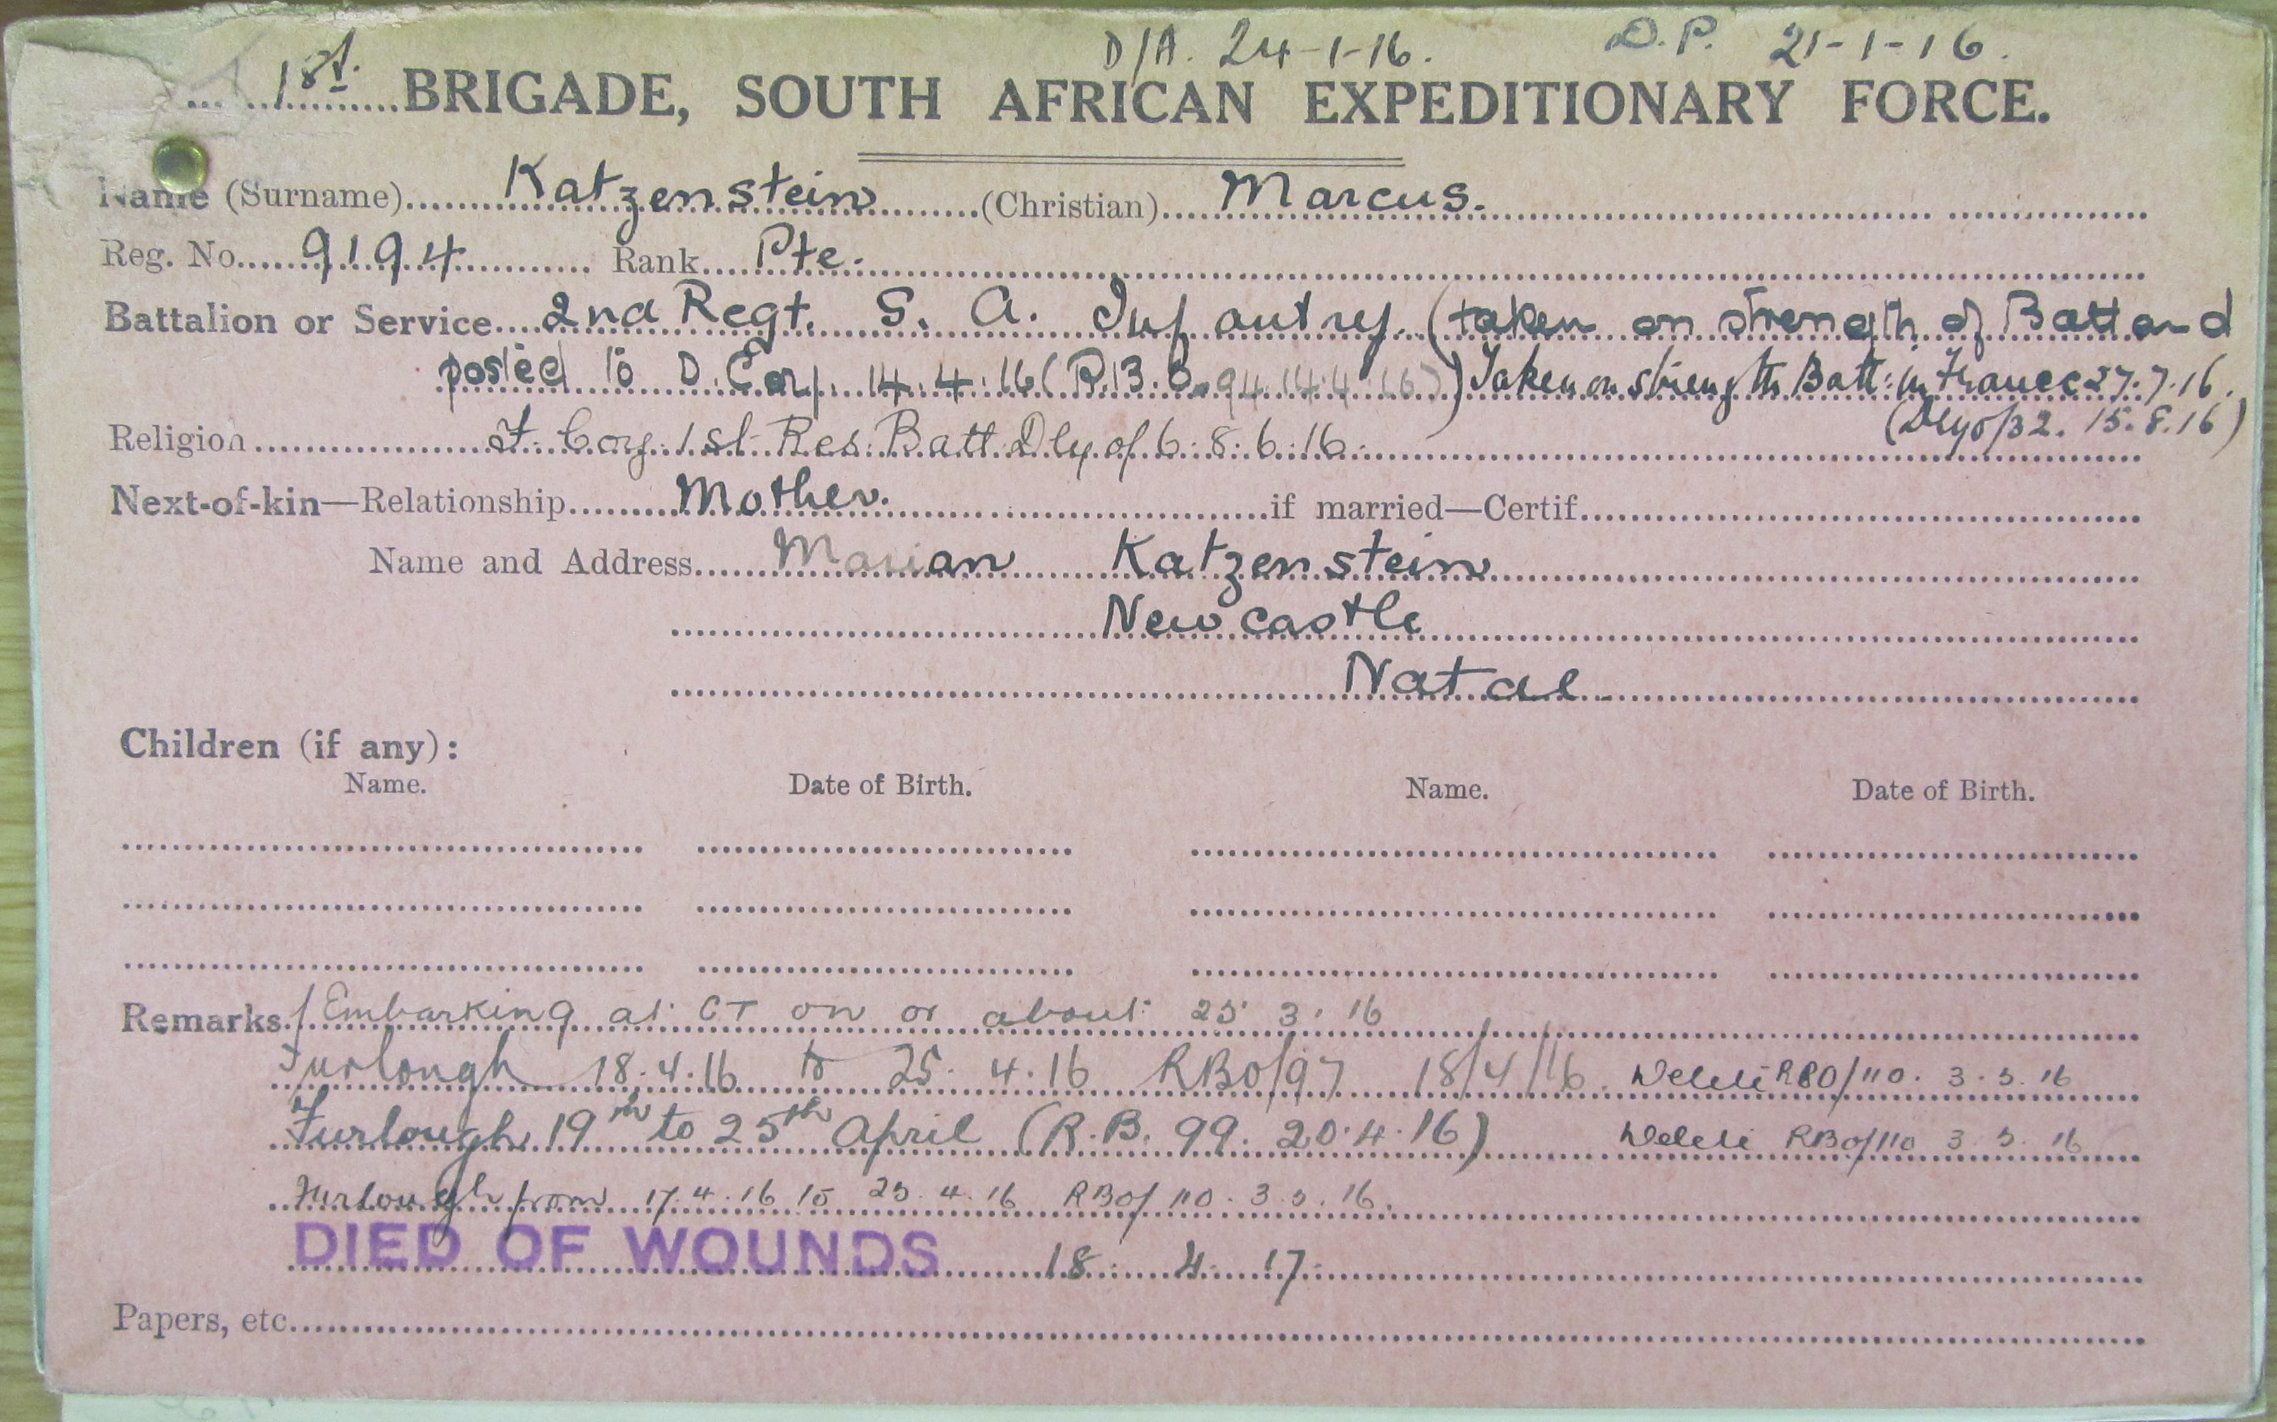 D/A. 24-1-16. D.P. 21-1-16.
1st. BRIGADE, SOUTH AFRICAN EXPEDITIONARY FORCE.
Name (Surname) Katzenstein (Christian) Marcus.
Reg. No. 9194 Rank Pte.
Battalion or Service 2nd Regt. S. A. Infantry. (taken on strength of Batt and
posted to D. Coy. 14.4.16 (R.B.O. 94 14.4.16)) Taken on strength Batt: in France 27.7.16.
(Dlyo/32. 15.8.16)
Religion F. Coy. 1st Res. Batt. Dly of 6. 8.6.16.
Next-of-kin—Relationship Mother. if married—Certif.
Name and Address Marian Katzenstein
Newcastle
Natal
Children (if any):
Name. Date of Birth. Name. Date of Birth.
Remarks Embarking at CT on or about 25 3.16
Furlough 18.4.16 to 25.4.16 RBO/97 18/4/16. RBO/110. 3.5.16
Furlough 19th to 25th April (R.B. 99. 20.4.16) RBO/110 3.5.16
Furlough from 17.4.16 to 25.4.16 RBO/110. 3.5.16.
DIED OF WOUNDS 18. 4. 17.
Papers, etc.